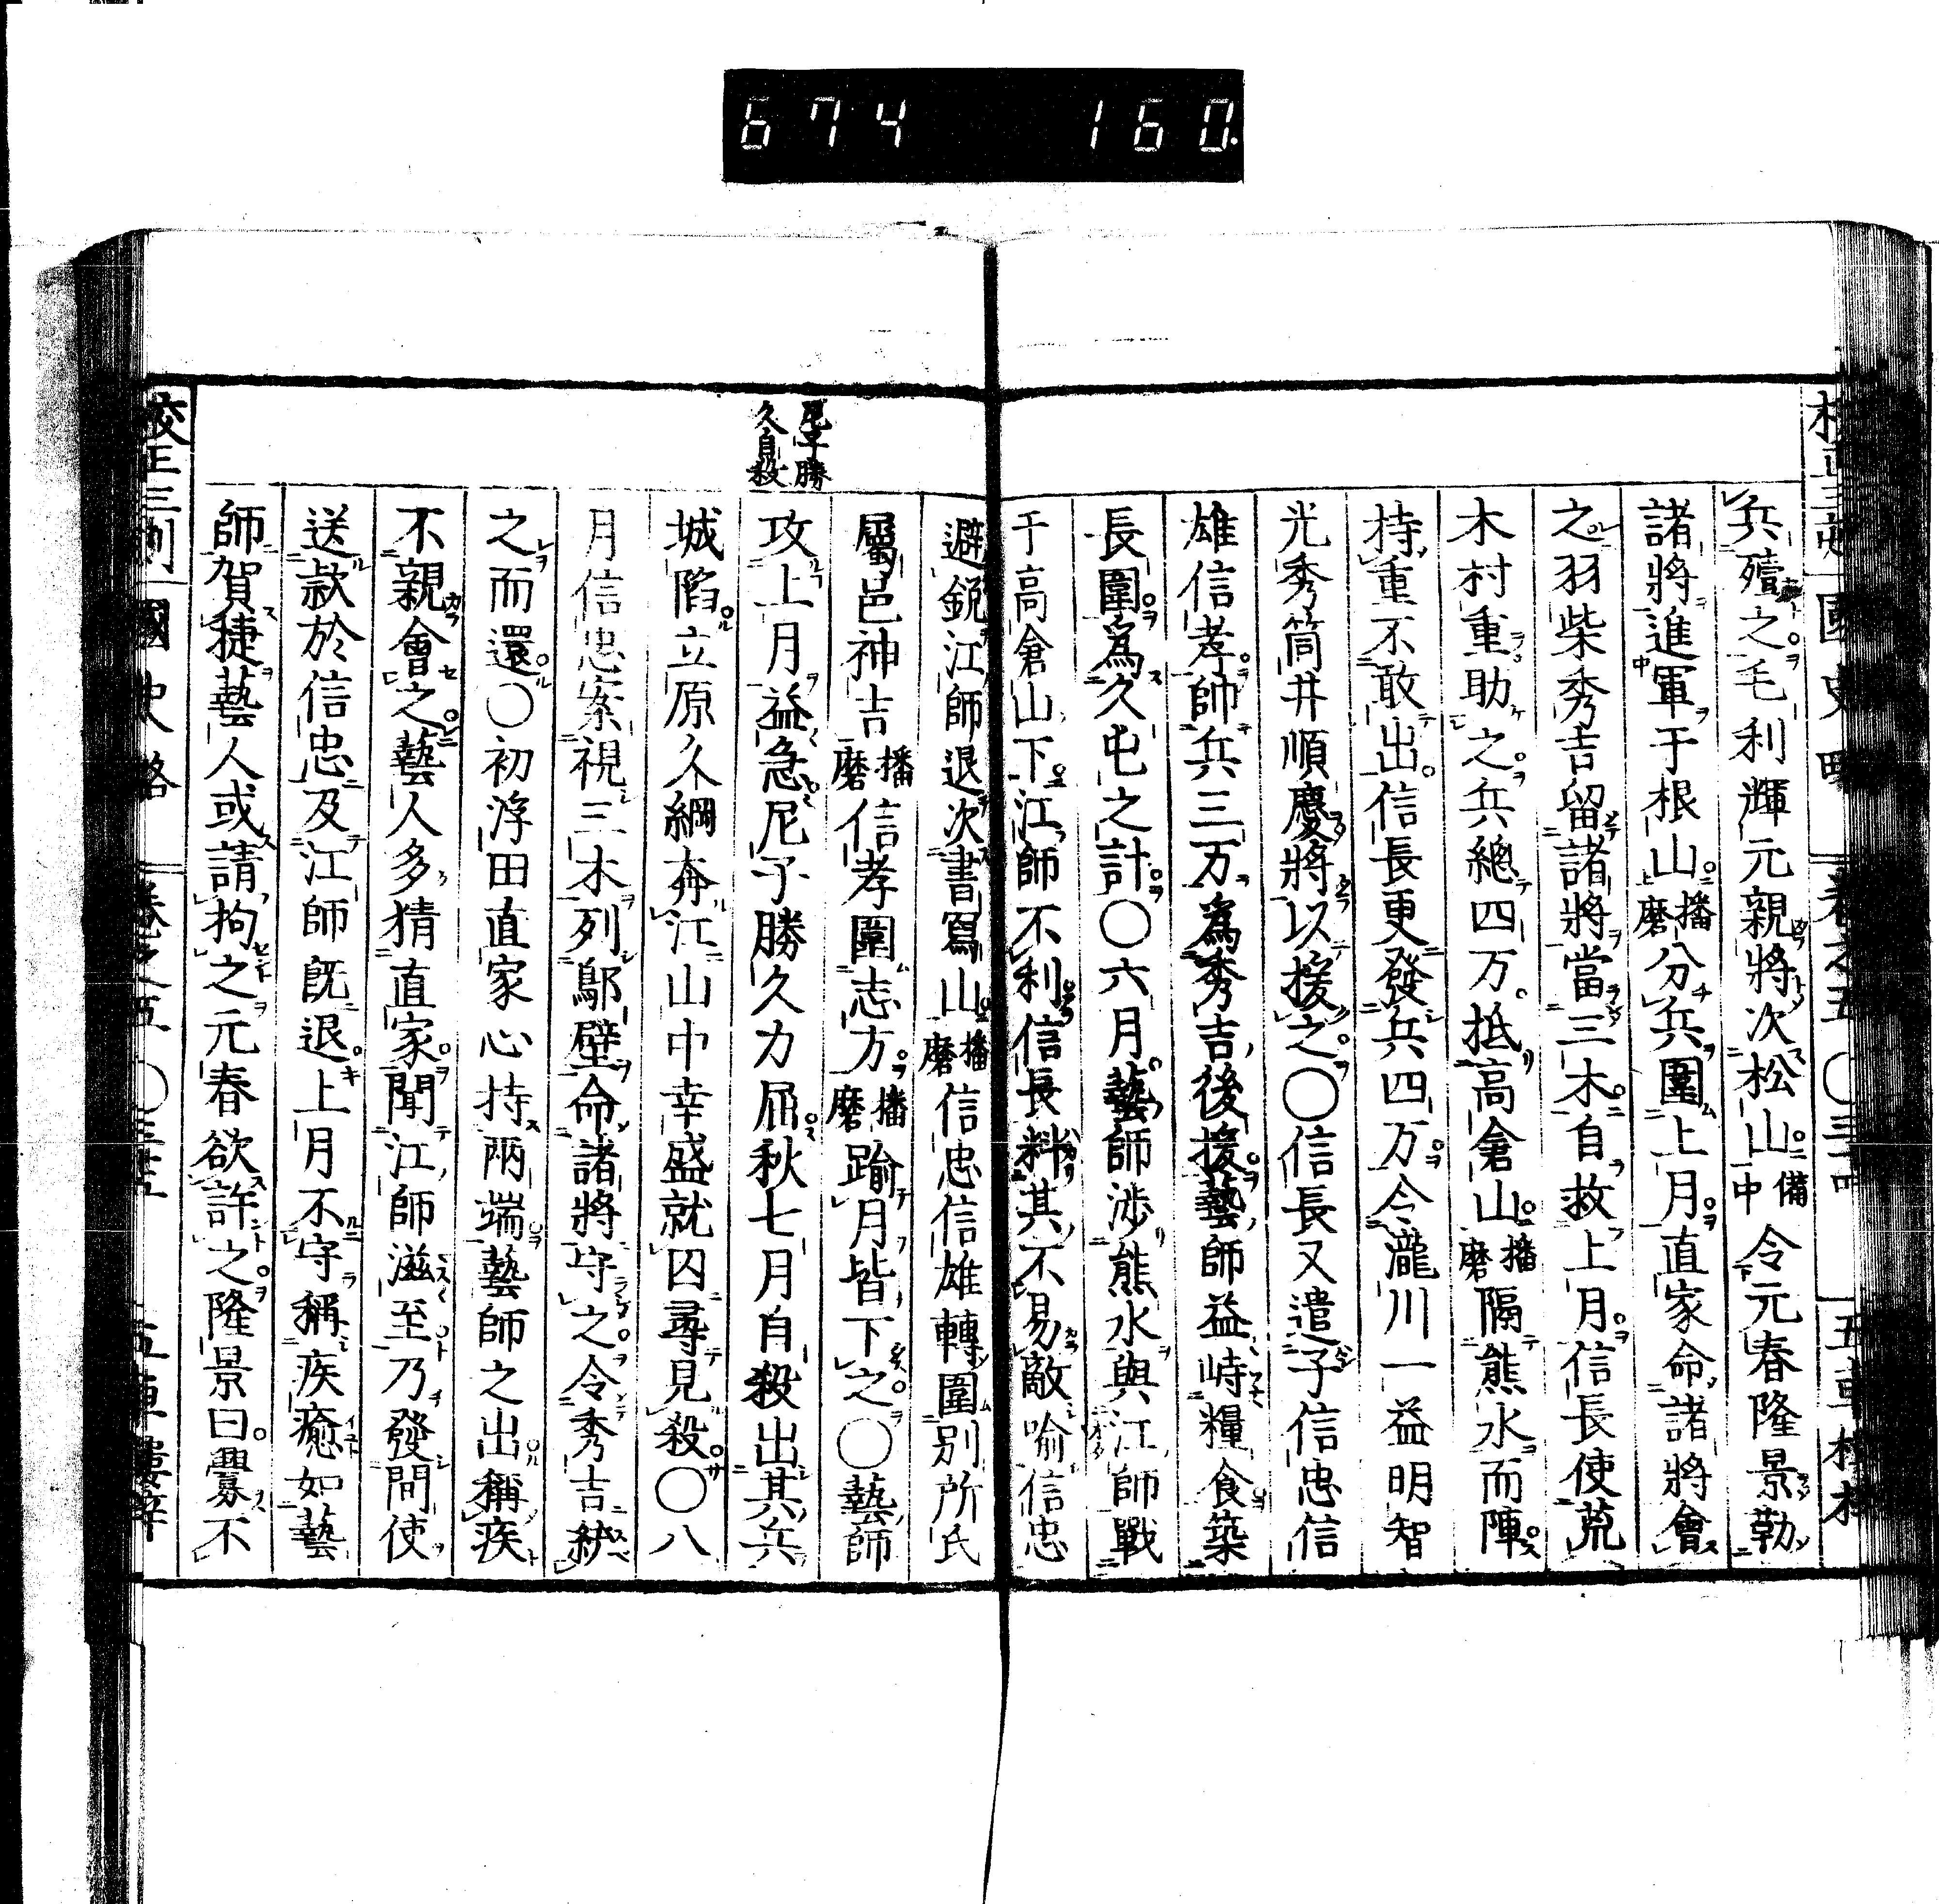 674 160.
國史略
五車樓
兵殪之毛利輝元親將次松山備中令元春隆景勒
諸將進軍于根山播磨分兵圍上月直家命諸將會
之羽柴秀吉留諸將當三木自救上月信長使荒
木村重助之兵總四万抵高倉山播磨隔熊水而陣
持重不敢出信長更發兵四万令瀧川一益明智
光秀筒井順慶將以援之〇信長又遣子信忠信
雄信孝帥兵三万為秀吉後援藝師益峙糧食築
長圍為久屯之計〇六月藝師涉熊水與江師戰
于高倉山下江師不利信長料其不易敵喻信忠
避銳江師退次書寫山播磨信忠信雄轉圍別所氏
屬邑神吉播磨信孝圍志方播磨踰月皆下之〇藝師
尼子勝久自殺
攻上月益急尼子勝久力屈秋七月自殺出其兵
城陷立原久綱奔江山中幸盛就囚尋見殺〇八
月信忠案視三木列鄔壁命諸將守之令秀吉統
之而還〇初浮田直家心持兩端藝師之出稱疾
不親會之藝人多猜直家聞江師滋至乃發間使
送款於信忠及江師既退上月不守稱疾癒如藝
師賀捷藝人或請拘之元春欲許之隆景曰釁不
校正三刻 國史略 卷之五 〇三十五 五車樓梓